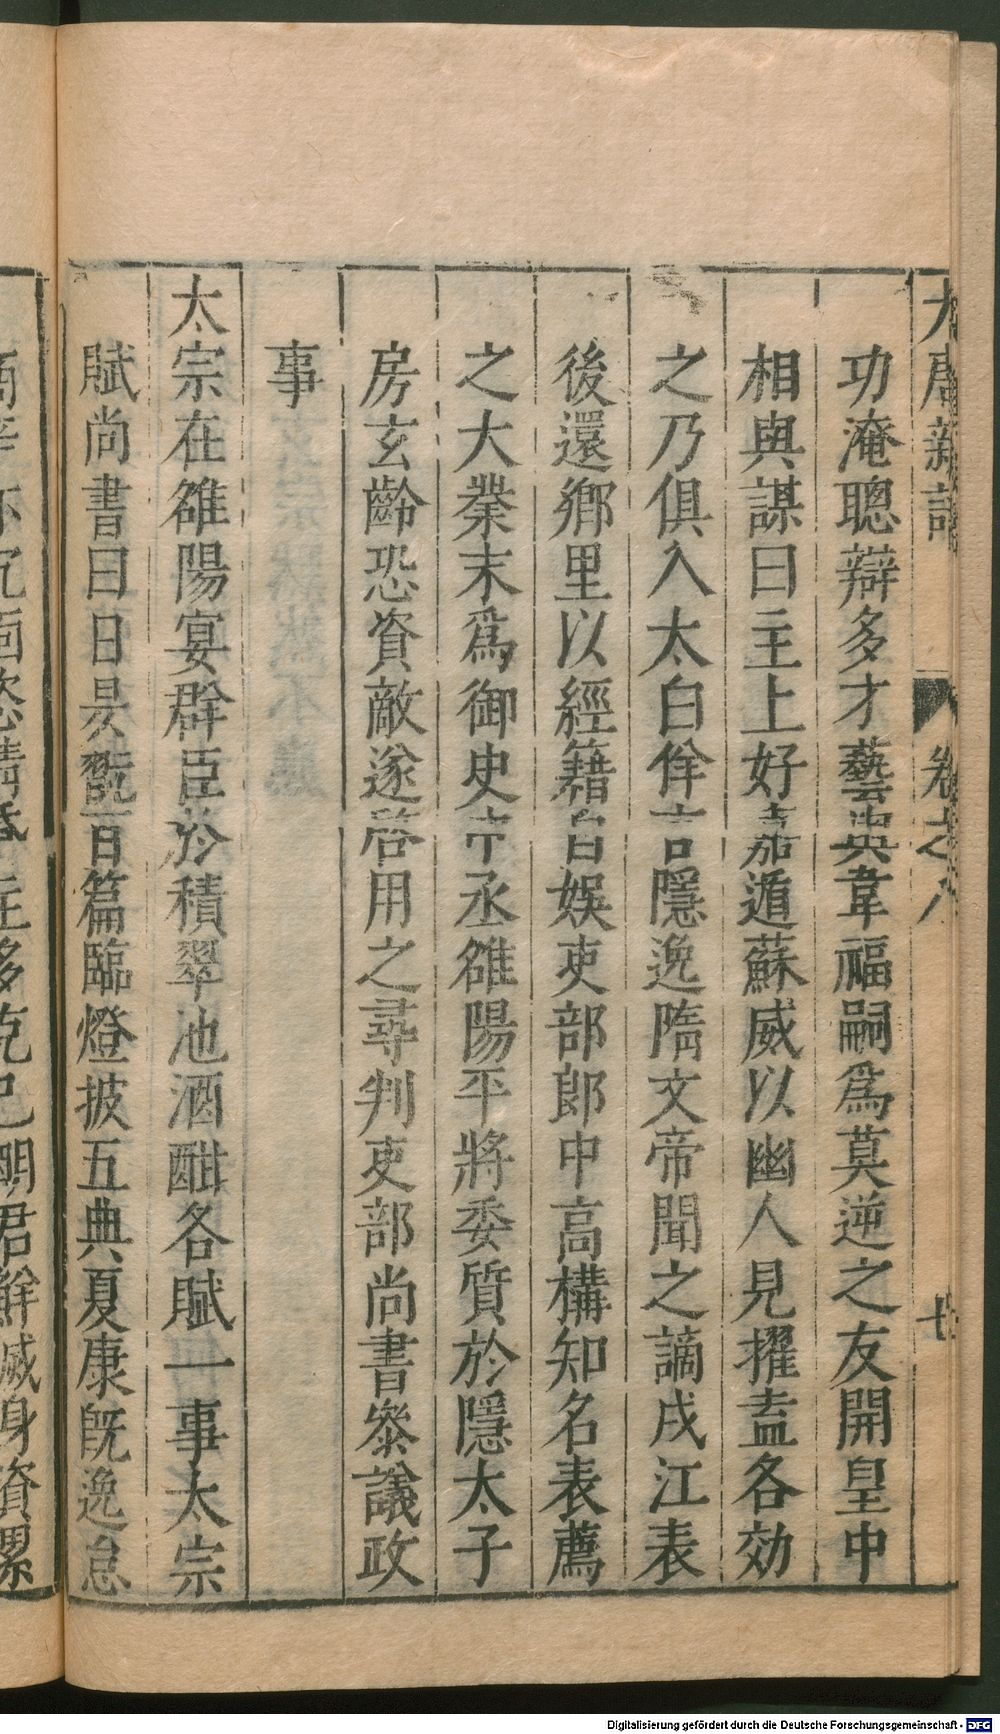 大唐新語 卷之八 十
功淹聰辯多才藝與韋福嗣爲莫逆之友開皇中
相與謀曰主上好嘉遁蘇威以幽人見擢盍各効
之乃俱入太白佯言隱逸隋文帝聞之謫戍江表
後還鄉里以經籍自娛吏部郎中高構知名表薦
之大業末爲御史中丞雒陽平將委質於隱太子
房玄齡恐資敵遂啓用之尋判吏部尚書叅議政
事
太宗在雒陽宴群臣於積翠池酒酣各賦一事太宗
賦尚書曰日昃翫百篇臨燈披五典夏康旣逸怠
商辛亦沉湎恣情昏主多克己明君鮮滅身資累
Digitalisierung gefördert durch die Deutsche Forschungsgemeinschaft - DFG